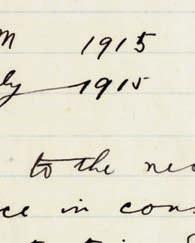 M 1915
ly 1915
to the ne
ce in cons